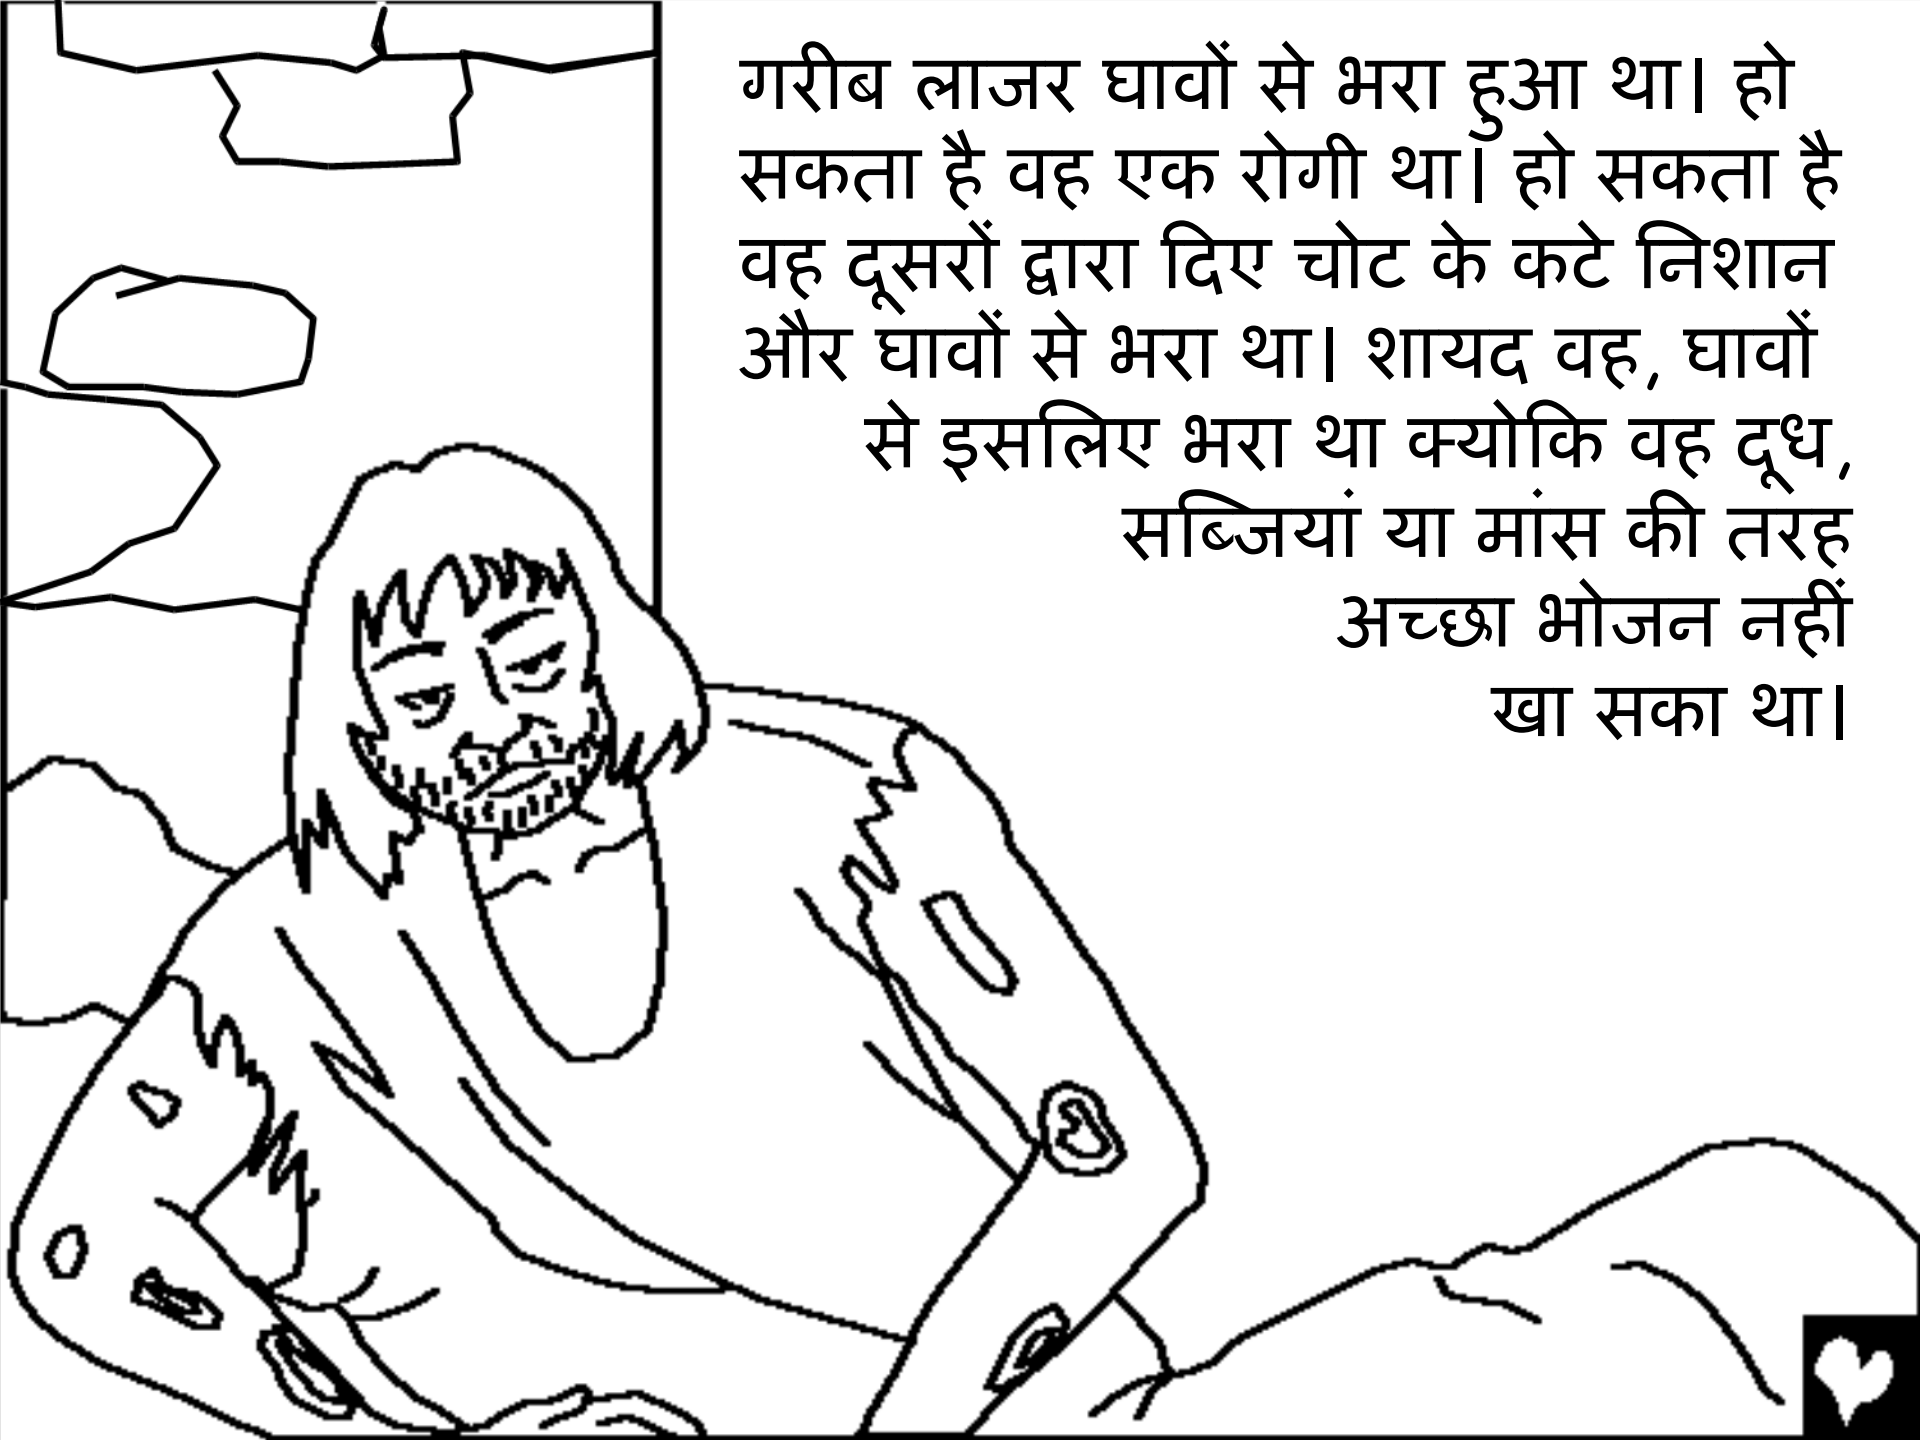 गरीब लाजर घावों से भरा हुआ था। हो
सकता है वह एक रोगी था। हो सकता है
वह दूसरों द्वारा दिए चोट के कटे निशान
और घावों से भरा था। शायद वह, घावों
से इसलिए भरा था क्योकि वह दूध,
सब्जियां या मांस की तरह
अच्छा भोजन नहीं
खा सका था।